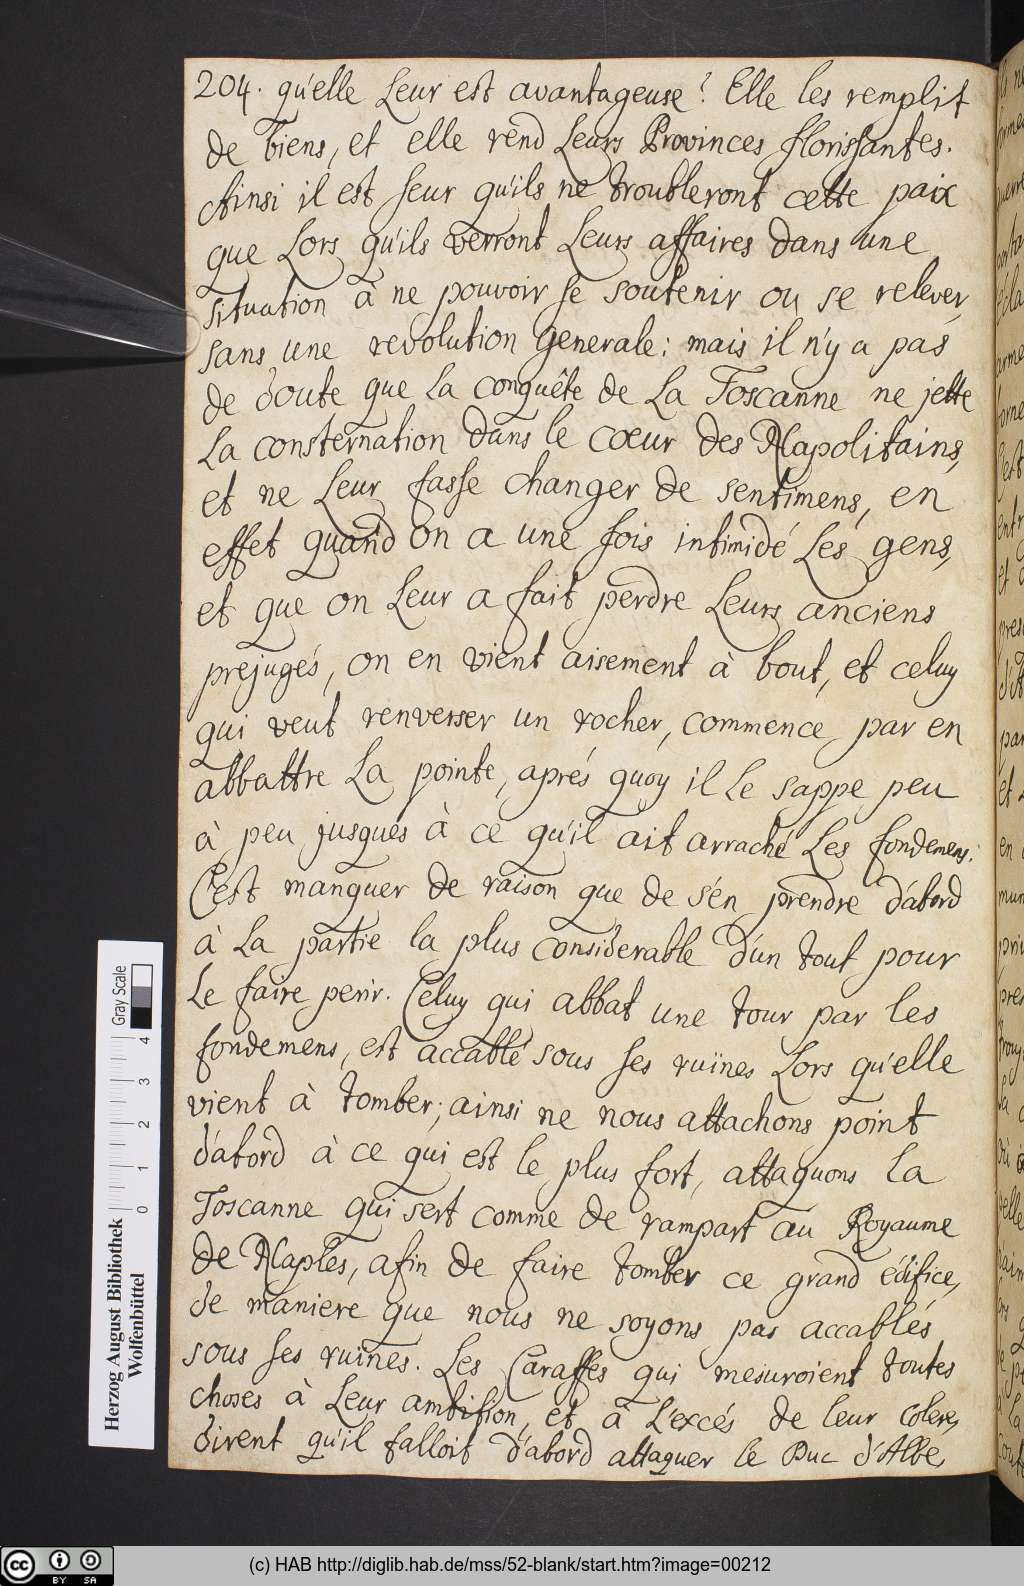 204. qu'elle Leur est avantageuse? Elle les remplit
de biens, et elle rend Leurs Provinces florissantes.
Ainsi il est seur qu'ils ne troubleront cette paix
que Lors qu'ils verront Leurs affaires dans une
situation à ne pouvoir se soutenir ou se relever,
sans une revolution generale: mais il n'y a pas
de doute que La conquête de La Toscanne ne jette
La consternation dans le cœur des Napolitains,
et ne Leur fasse changer de sentimens, en
effet quand on a une fois intimidé Les gens,
et que on Leur a fait perdre Leurs anciens
prejugés, on en vient aisement à bout, et celuy
qui veut renverser un rocher, commence par en
abbattre La pointe, aprés quoy il Le sappe peu
à peu jusques à ce qu'il ait arraché Les fondemens:
C'est manquer de raison que de s'en prendre d'abord
à La partie la plus considerable d'un tout pour
Le faire perir. Celuy qui abbat une tour par les
fondemens, est accablé sous ses ruïnes Lors qu'elle
vient à tomber; ainsi ne nous attachons point
d'abord à ce qui est le plus fort, attaquons la
Toscanne qui sert comme de rampart au Royaume
de Naples, afin de faire tomber ce grand édifice,
de maniere que nous ne soyons pas accablés
sous ses ruines. Les Caraffes qui mesuroient toutes
choses à Leur ambition, et à L'excés de leur colere,
dirent qu'il falloit d'abord attaquer le Duc d'Albe,
Herzog August Bibliothek
Wolfenbüttel
0 1 2 3 4
Gray Scale
(c) HAB http://diglib.hab.de/mss/52-blank/start.htm?image=00212
cc BY SA